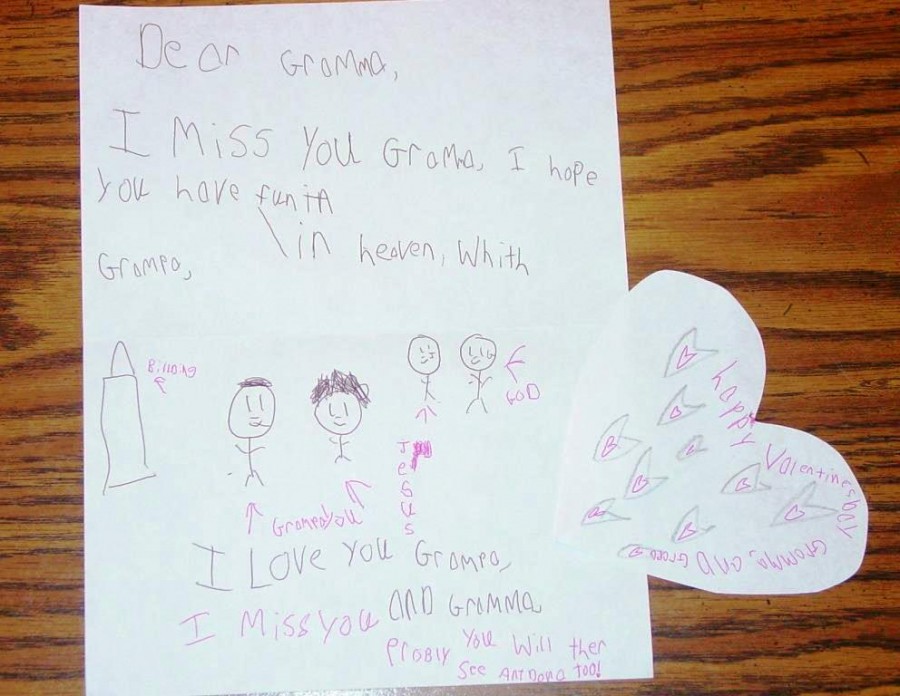 Dear Gramma,
I Miss You Grama, I hope
you have fun in
in heaven, Whith
Grampa,
Billding
GOD
Jesus
Grampa You
I Love You Grampa,
AND Gramma
I Miss you
Probly You Will ther
See Ant Dona too!
happy
Valentinesday
Gramma, AND